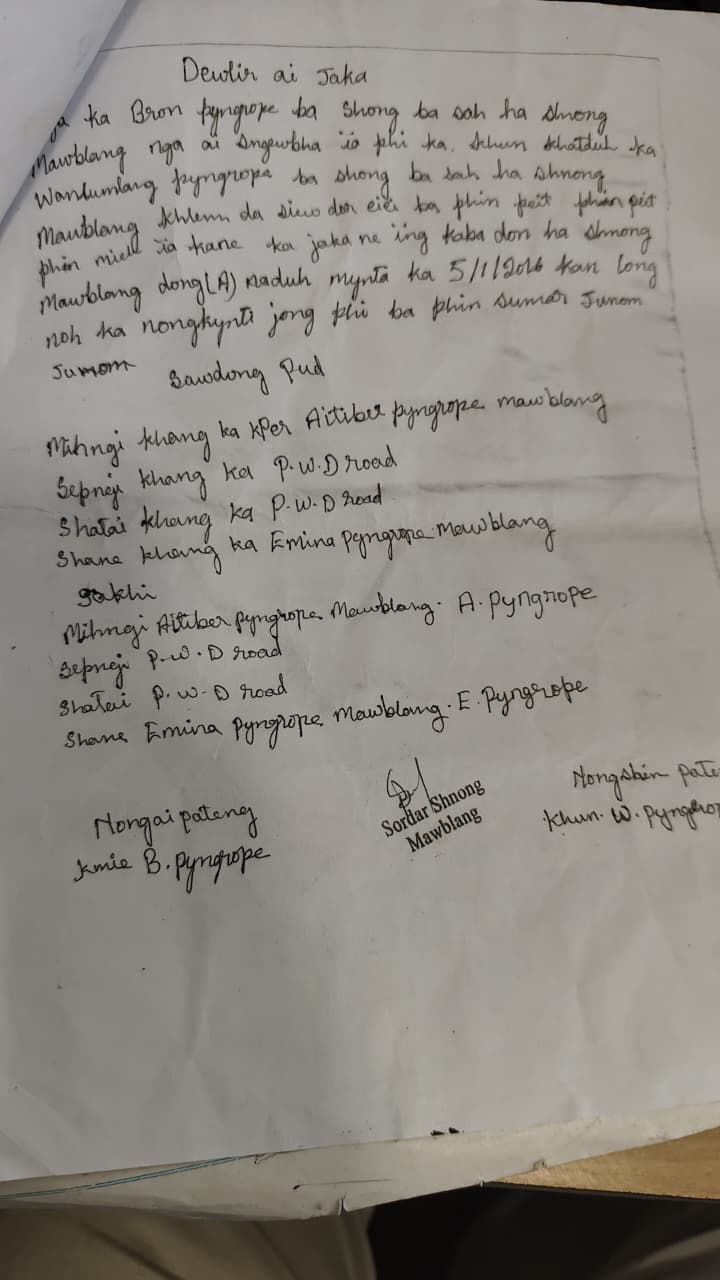 Dewlir ai Jaka
ka Bron pyngrope ba Shong ba sah ha shnong
Mawblang nga ai sngewbha ïa phi ka khun khatduh ka
Wanlumlang pyngrope ba shong ba sah ha shnong
Mawblang khlem da siew dor eiei ba phin peit phin pit
phin miet ïa kane ka jaka ne ing kaba don ha shnong
Mawblang dong (A) naduh mynta ka 5/1/2016 kan long
noh ka nongkynti jong phi ba phin sumar Junom
Jumom
Sawdong Pud
Mihngi khang ka kper Aitiber pyngrope mawblang
Sepngi khang ka P.W.D road
Shatai khang ka P.W.D road.
Shane khang ka Emina pyngrope Mawblang
Sakhi
Mihngi Aitiber pyngrope Mawblang. A. pyngrope
Sepngi P.W.D road
Shatai P.W.D road
Shane Emina pyngrope Mawblang. E. Pyngrope
Nongai pateng
kmie B. pyngrope
Sordar Shnong
Mawblang
Nongshim pate
khun. W. pyngrop